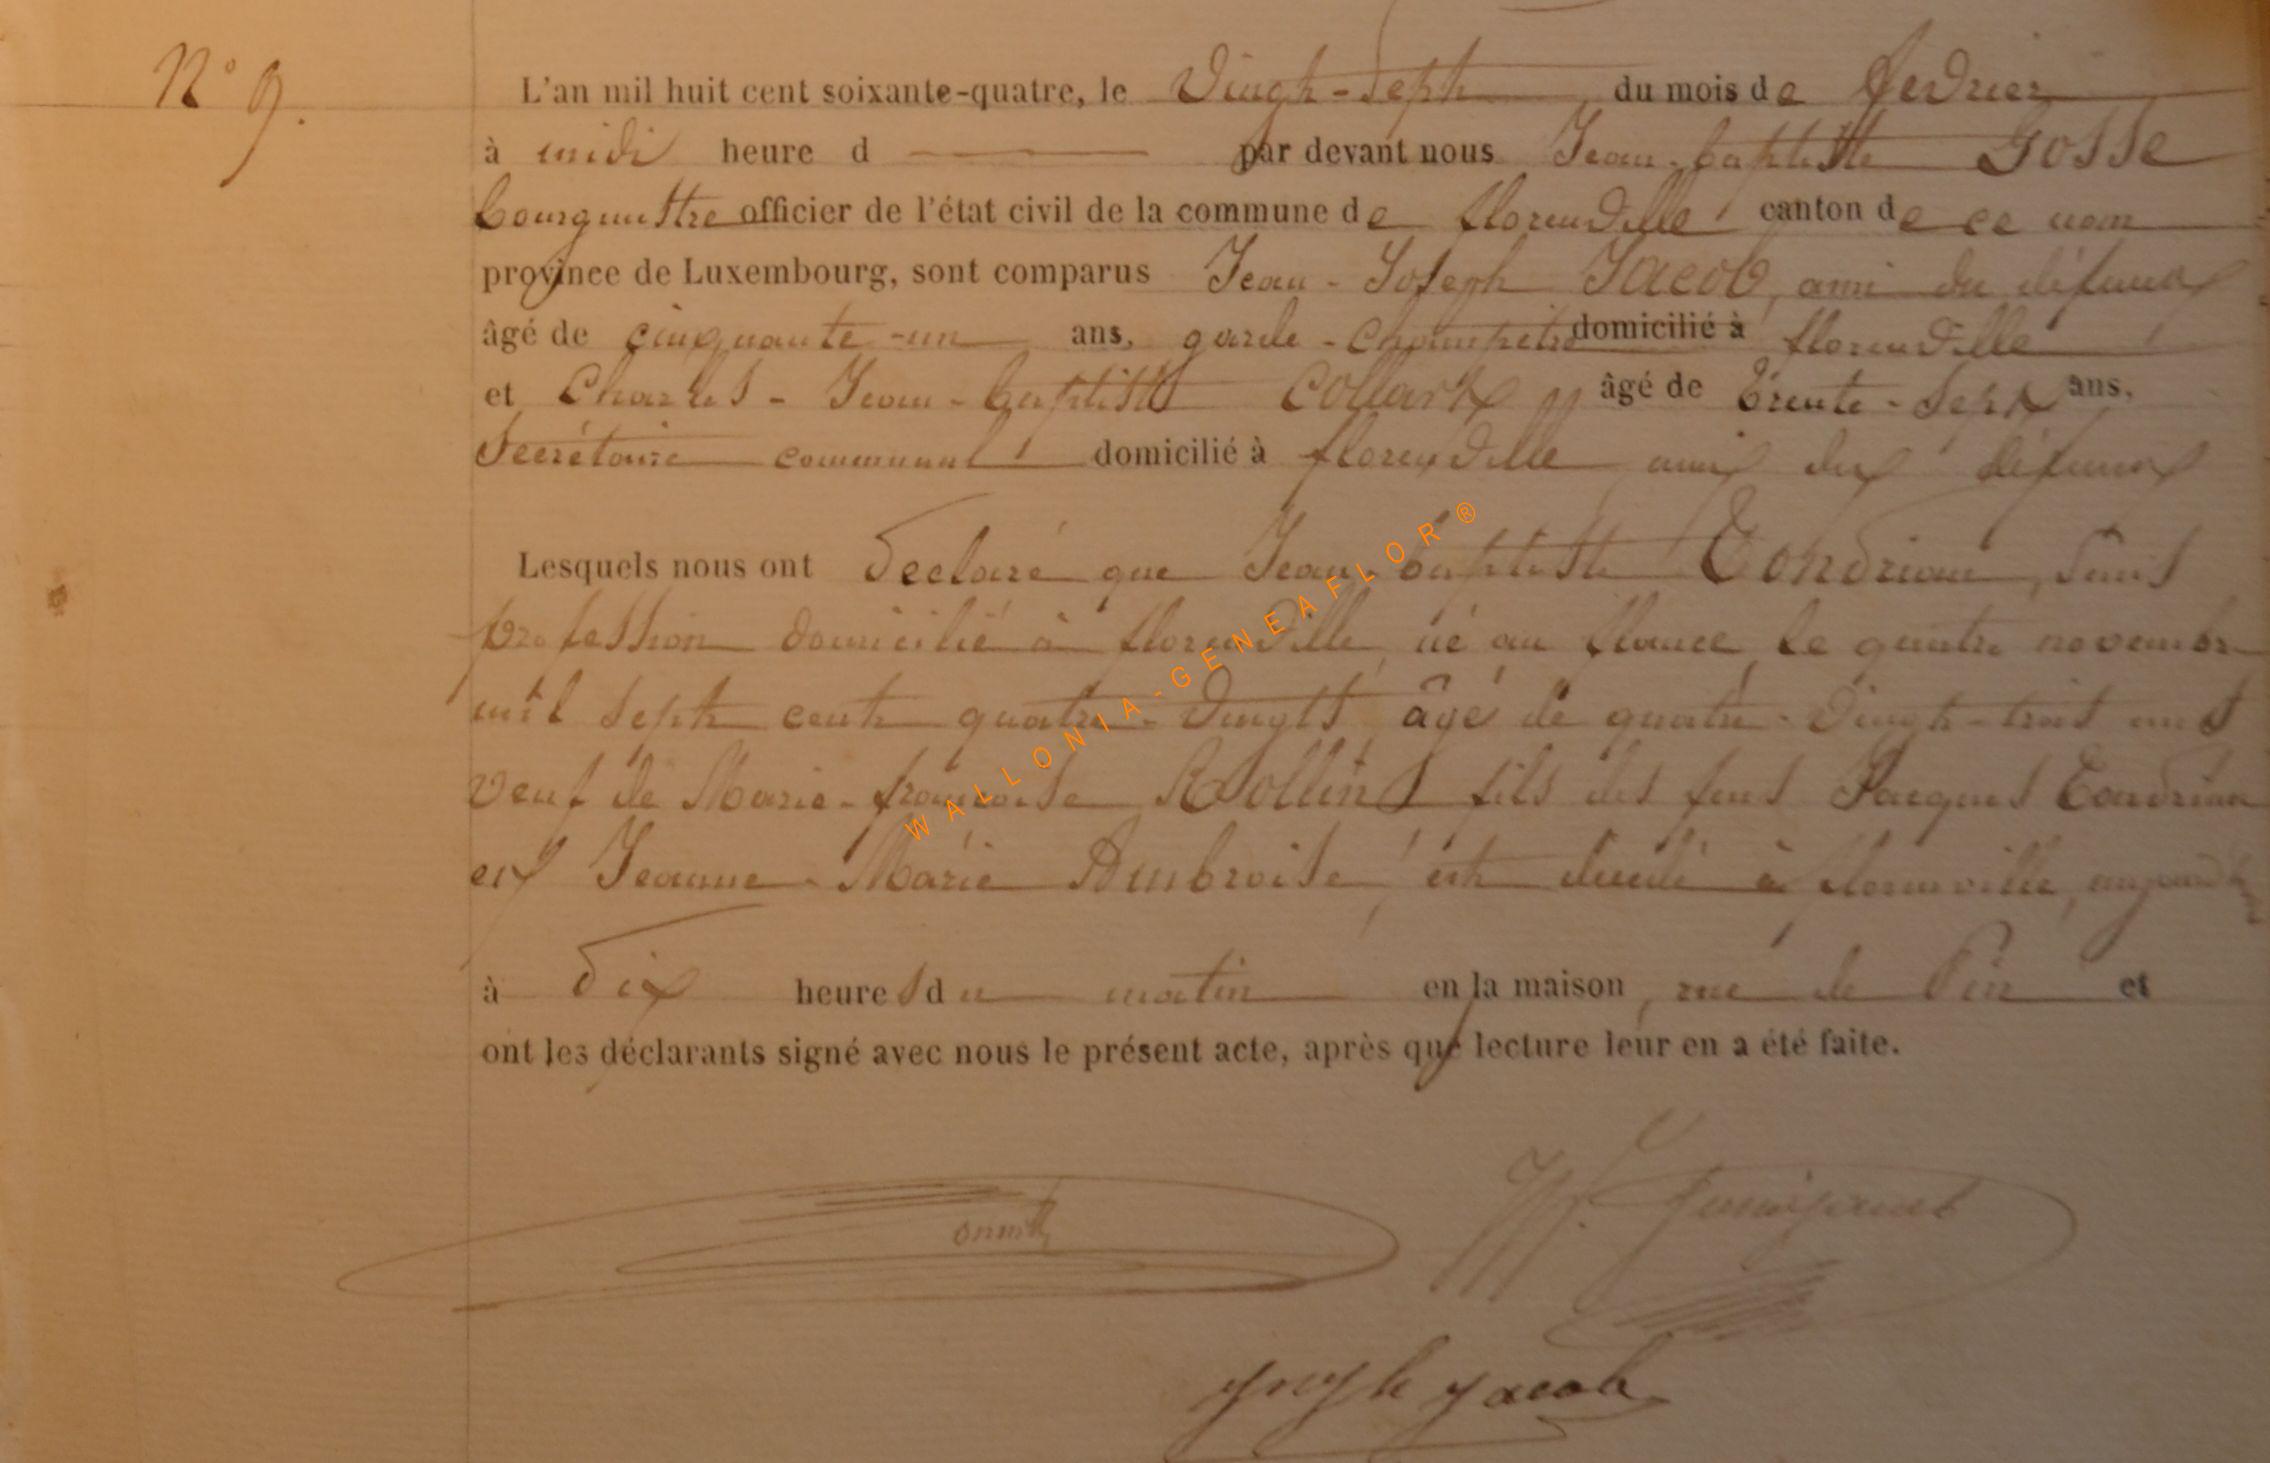 N° 9.
L'an mil huit cent soixante-quatre, le Vingt-Sept du mois de fevrier
à midi heure d par devant nous Jean-baptiste Gosse
bourgmestre officier de l'état civil de la commune de florenville canton de ce nom
province de Luxembourg, sont comparus Jean-Joseph Jacob, ami du défunt
âgé de cinquante-un ans, garde-champêtre domicilié à florenville
et Charles-Jean-baptiste Collart âgé de trente-Sept ans,
Secrétaire communal domicilié à florenville ami du défunt
Lesquels nous ont declaré que Jean-baptiste Tondriau, Sans
profession domicilié à florenville, né au le quatre novembre
mil Sept cent quatre-Vingts âgé de quatre-Vingt-trois ans
veuf de Marie-françoise fils des feus Jacques Tondriau
et Jeanne-Marie Ambroise, est décédé à florenville, aujourd'hui
à dix heures du matin en la maison, rue de Pin et
ont les déclarants signé avec nous le présent acte, après que lecture leur en a été faite.
Jacob
WALLONIA-GENEAFLOR®